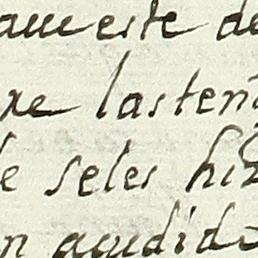 aueeste de
re lasten
e seles hiz
n acudido